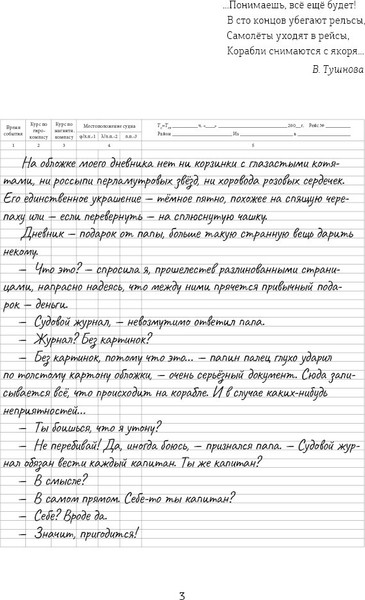 ...Понимаешь, всё ещё будет!
В сто концов убегают рельсы,
Самолёты уходят в рейсы,
Корабли снимаются с якоря...
В. Тушнова
Время события
Курс по гиро-компасу
Курс по магнитн. компасу
Местоположение судна
1 2 3 4 5
На обложке моего дневника нет ни корзинки с глазастыми котя-
тами, ни россыпи перламутровых звёзд, ни хоровода розовых сердечек.
Его единственное украшение — тёмное пятно, похожее на спящую чере-
паху или — если перевернуть — на сплюснутую чашку.
Дневник — подарок от папы, больше такую странную вещь дарить
некому.
— Что это? — спросила я, прошелестев разлинованными страни-
цами, напрасно надеясь, что между ними прячется привычный пода-
рок — деньги.
— Судовой журнал, — невозмутимо ответил папа.
— Журнал? Без картинок?
— Без картинок, потому что это... — папин палец глухо ударил
по толстому картону обложки, — очень серьёзный документ. Сюда запи-
сывается всё, что происходит на корабле. И в случае каких-нибудь
неприятностей...
— Ты боишься, что я утону?
— Не перебивай! Да, иногда боюсь, — признался папа. — Судовой жур-
нал обязан вести каждый капитан. Ты же капитан?
— В смысле?
— В самом прямом. Себе-то ты капитан?
— Себе? Вроде да.
— Значит, пригодится!
3